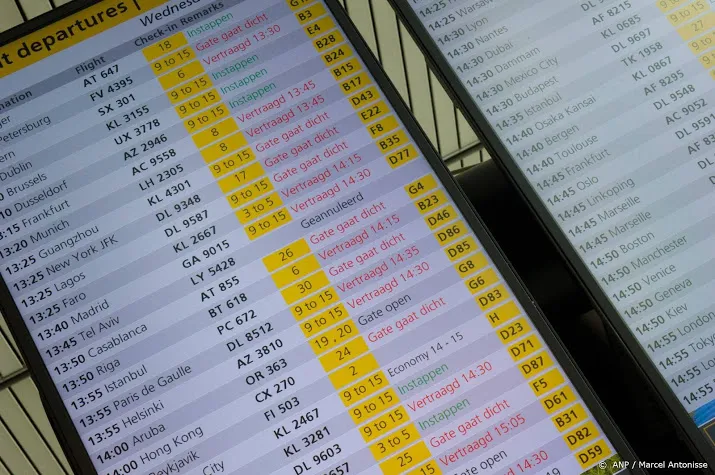 t departures
Wednesd
mation Flight Check-in Remarks
AT 647
Petersburg FV 4395
SX 301
Dublin KL 3155
Brussels UX 3778
Dusseldorf AZ 2946
Frankfurt AC 9558
13:20 Munich LH 2305
13:25 Guangzhou KL 4301
13:25 New York JFK DL 9348
13:25 Lagos DL 9587
13:25 Faro KL 2667
13:40 Madrid GA 9015
13:45 Tel Aviv LY 5428
13:50 Casablanca AT 855
13:50 Riga BT 618
13:55 Istanbul PC 672
13:55 Paris de Gaulle DL 8512
13:55 Helsinki AZ 3810
14:00 Aruba OR 363
14:00 Hong Kong CX 270
Reykjavik FI 503
City KL 2467
KL 3281
DL 9603
18
9 to 15
6
9 to 15
9 to 15
9 to 15
8
8
9 to 15
17
9 to 15
3 to 5
9 to 15
26
6
30
9 to 15
9 to 15
19, 20
24
2
9 to 15
9 to 15
3 to 5
25
15
Instappen
Gate gaat dicht
Vertraagd 13:30
Instappen
Instappen
Vertraagd 13:45
Vertraagd 13:45
Gate gaat dicht
Gate gaat dicht
Vertraagd 14:15
Vertraagd 14:30
Geannuleerd
Gate gaat dicht
Vertraagd 14:15
Gate gaat dicht
Vertraagd 14:35
Vertraagd 14:30
Gate open
Gate gaat dicht
Economy 14 - 15
Instappen
Vertraagd 14:30
Instappen
Gate gaat dicht
Vertraagd 15:05
Gate gaat dicht
14:30
B3
E4
B28
B24
B15
B17
D43
E22
F8
B35
D77
G4
B23
D46
D86
D85
G8
G6
D83
H
D23
D71
D87
F5
D61
B31
D82
D59
14:25 Warsaw
14:30 Lyon
14:30 Nantes
14:30 Dubai
14:30 Dammam
14:30 Mexico City
14:30 Budapest
14:35 Istanbul
14:40 Osaka Kansai
14:40 Bergen
14:40 Toulouse
14:45 Frankfurt
14:45 Oslo
14:45 Linkoping
14:45 Marseille
14:45 Marseille
14:50 Boston
14:50 Manchester
14:50 Venice
14:50 Geneva
14:50 Kiev
14:55 London
14:55 Tok
AF 8215
KL 0685
DL 9697
TK 1958
KL 0867
AF 8295
DL 9548
AC 9052
DL 9591
9 to 15
© ANP / Marcel Antonisse